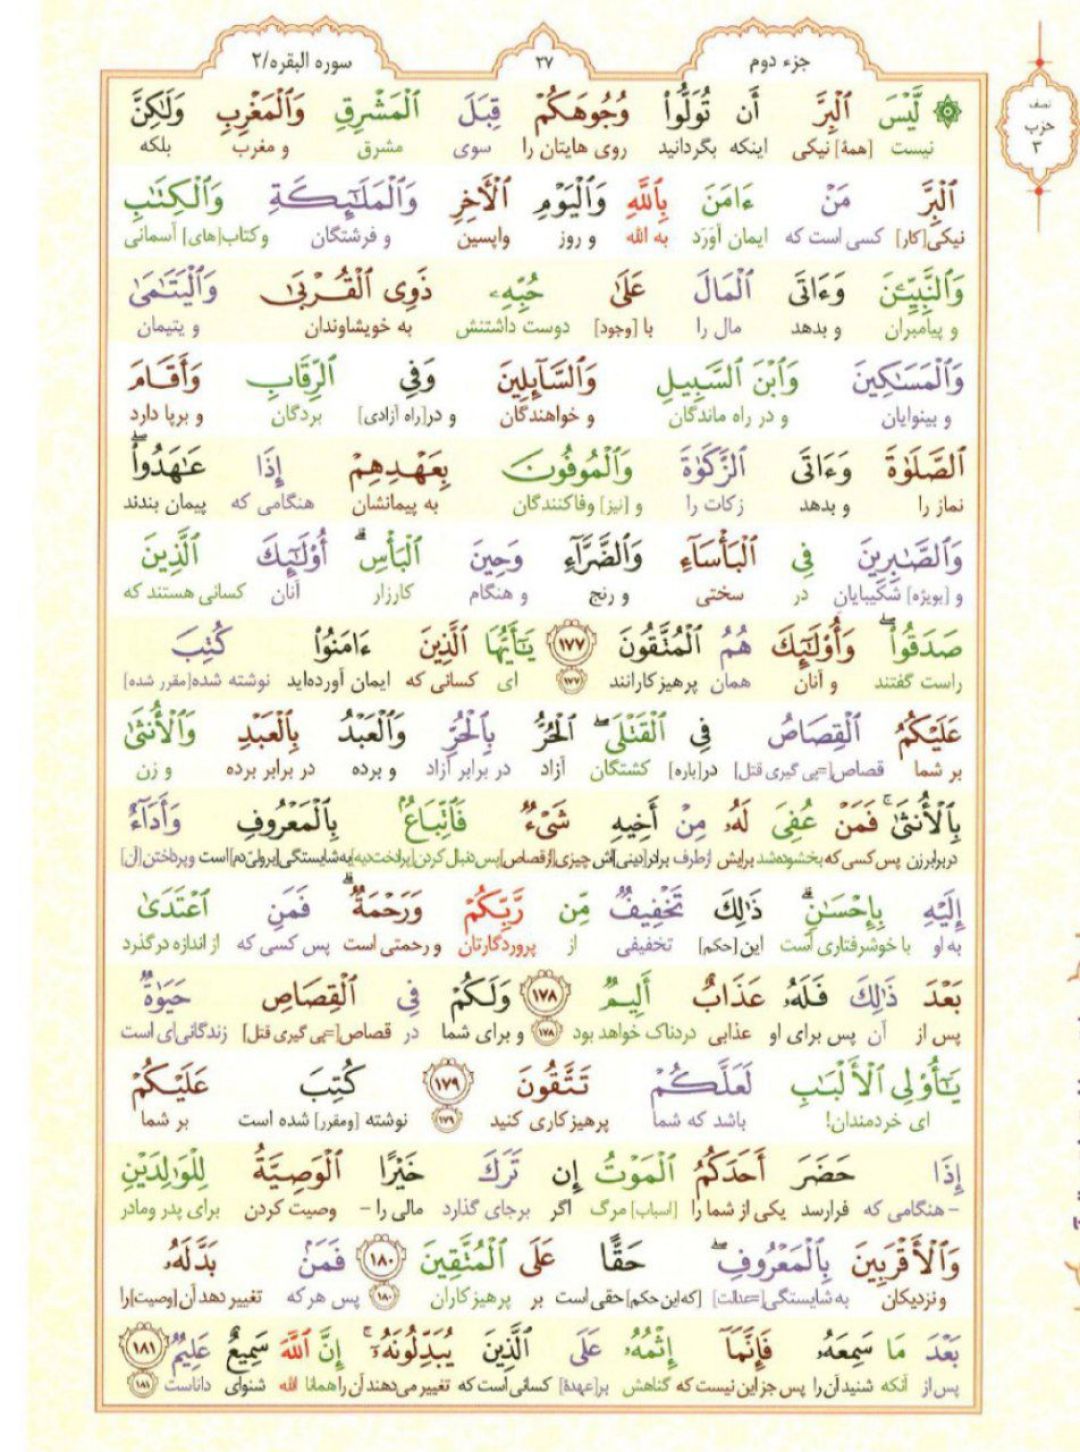 جزء دوم
۲۷
سوره البقره/۲
نصف
حزب
۳
لَّيْسَ ٱلْبِرَّ أَن تُوَلُّوا۟ وُجُوهَكُمْ قِبَلَ ٱلْمَشْرِقِ وَٱلْمَغْرِبِ وَلَٰكِنَّ
نیست [همهٔ] نیکی اینکه بگردانید روی هایتان را سوی مشرق و مغرب بلکه
ٱلْبِرَّ مَنْ ءَامَنَ بِٱللَّهِ وَٱلْيَوْمِ ٱلْـَٔاخِرِ وَٱلْمَلَٰٓئِكَةِ وَٱلْكِتَٰبِ
نیکی[کار] کسی است که ایمان آوَرَد به الله و روز واپسین و فرشتگان و کتاب[های] آسمانی
وَٱلنَّبِيِّـۧنَ وَءَاتَى ٱلْمَالَ عَلَىٰ حُبِّهِۦ ذَوِى ٱلْقُرْبَىٰ وَٱلْيَتَٰمَىٰ
و پیامبران و بدهد مال را با [وجود] دوست داشتنش به خویشاوندان و یتیمان
وَٱلْمَسَٰكِينَ وَٱبْنَ ٱلسَّبِيلِ وَٱلسَّآئِلِينَ وَفِى ٱلرِّقَابِ وَأَقَامَ
و بینوایان و در راه ماندگان و خواهندگان و در[راه آزادی] بردگان و برپا دارد
ٱلصَّلَوٰةَ وَءَاتَى ٱلزَّكَوٰةَ وَٱلْمُوفُونَ بِعَهْدِهِمْ إِذَا عَٰهَدُوا۟ ۖ
نماز را و بدهد زکات را و [نیز] وفاکنندگان به پیمانشان هنگامی که پیمان بندند
وَٱلصَّٰبِرِينَ فِى ٱلْبَأْسَآءِ وَٱلضَّرَّآءِ وَحِينَ ٱلْبَأْسِ ۗ أُو۟لَٰٓئِكَ ٱلَّذِينَ
و [بویژه] شکیبایان در سختی و رنج و هنگام کارزار آنان کسانی هستند که
صَدَقُوا۟ ۖ وَأُو۟لَٰٓئِكَ هُمُ ٱلْمُتَّقُونَ ۱۷۷ يَٰٓأَيُّهَا ٱلَّذِينَ ءَامَنُوا۟ كُتِبَ
راست گفتند و آنان همان پرهیزکارانند ۱۷۷ ای کسانی که ایمان آورده‌اید نوشته شده[مقرر شده]
عَلَيْكُمُ ٱلْقِصَاصُ فِى ٱلْقَتْلَى ۖ ٱلْحُرُّ بِٱلْحُرِّ وَٱلْعَبْدُ بِٱلْعَبْدِ وَٱلْأُنثَىٰ
بر شما قصاص[=پی گیری قتل] در[باره] کشتگان آزاد در برابر آزاد و برده در برابر برده و زن
بِٱلْأُنثَىٰ ۚ فَمَنْ عُفِىَ لَهُۥ مِنْ أَخِيهِ شَىْءٌ فَٱتِّبَاعٌۢ بِٱلْمَعْرُوفِ وَأَدَآءٌ
در برابر زن پس کسی که بخشوده شد برایش از طرف برادر[دینی]اش چیزی[از قصاص] پس دنبال کردن[پرداخت دیه] به شایستگی[بر ولیّ دم] است و پرداختن[آن]
إِلَيْهِ بِإِحْسَٰنٍ ۗ ذَٰلِكَ تَخْفِيفٌ مِّن رَّبِّكُمْ وَرَحْمَةٌ ۗ فَمَنِ ٱعْتَدَىٰ
به او با خوشرفتاری است این[حکم] تخفیفی از پروردگارتان و رحمتی است پس کسی که از اندازه درگذرد
بَعْدَ ذَٰلِكَ فَلَهُۥ عَذَابٌ أَلِيمٌ ۱۷۸ وَلَكُمْ فِى ٱلْقِصَاصِ حَيَوٰةٌ
پس از آن پس برای او عذابی دردناک خواهد بود ۱۷۸ و برای شما در قصاص[=پی گیری قتل] زندگانی‌ای است
يَٰٓأُو۟لِى ٱلْأَلْبَٰبِ لَعَلَّكُمْ تَتَّقُونَ ۱۷۹ كُتِبَ عَلَيْكُمْ
ای خردمندان! باشد که شما پرهیزکاری کنید ۱۷۹ نوشته [ومقرر] شده است بر شما
إِذَا حَضَرَ أَحَدَكُمُ ٱلْمَوْتُ إِن تَرَكَ خَيْرًا ٱلْوَصِيَّةُ لِلْوَٰلِدَيْنِ
– هنگامی که فرارسد یکی از شما را [اسباب] مرگ اگر برجای گذارد مالی را – وصیت کردن برای پدر ومادر
وَٱلْأَقْرَبِينَ بِٱلْمَعْرُوفِ ۖ حَقًّا عَلَى ٱلْمُتَّقِينَ ۱۸۰ فَمَنۢ بَدَّلَهُۥ
و نزدیکان به شایستگی[=عدالت] [که این حکم]حقی است بر پرهیزکاران ۱۸۰ پس هر که تغییر دهد آن [وصیت]را
بَعْدَ مَا سَمِعَهُۥ فَإِنَّمَآ إِثْمُهُۥ عَلَى ٱلَّذِينَ يُبَدِّلُونَهُۥٓ ۚ إِنَّ ٱللَّهَ سَمِيعٌ عَلِيمٌ ۱۸۱
پس از آنکه شنید آن را پس جز این نیست که گناهش بر[عهدهٔ] کسانی است که تغییر می‌دهند آن را همانا الله شنوای داناست ۱۸۱